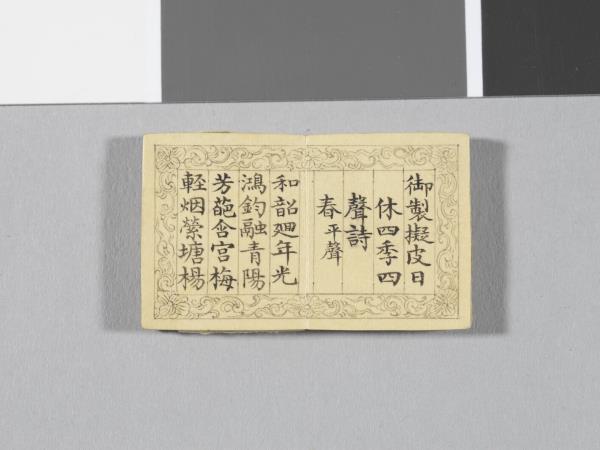 御製擬皮日
休四季四
聲詩
春平聲
和韶廻年光
鴻鈞融青陽
芳葩含宮梅
輕烟縈塘楊